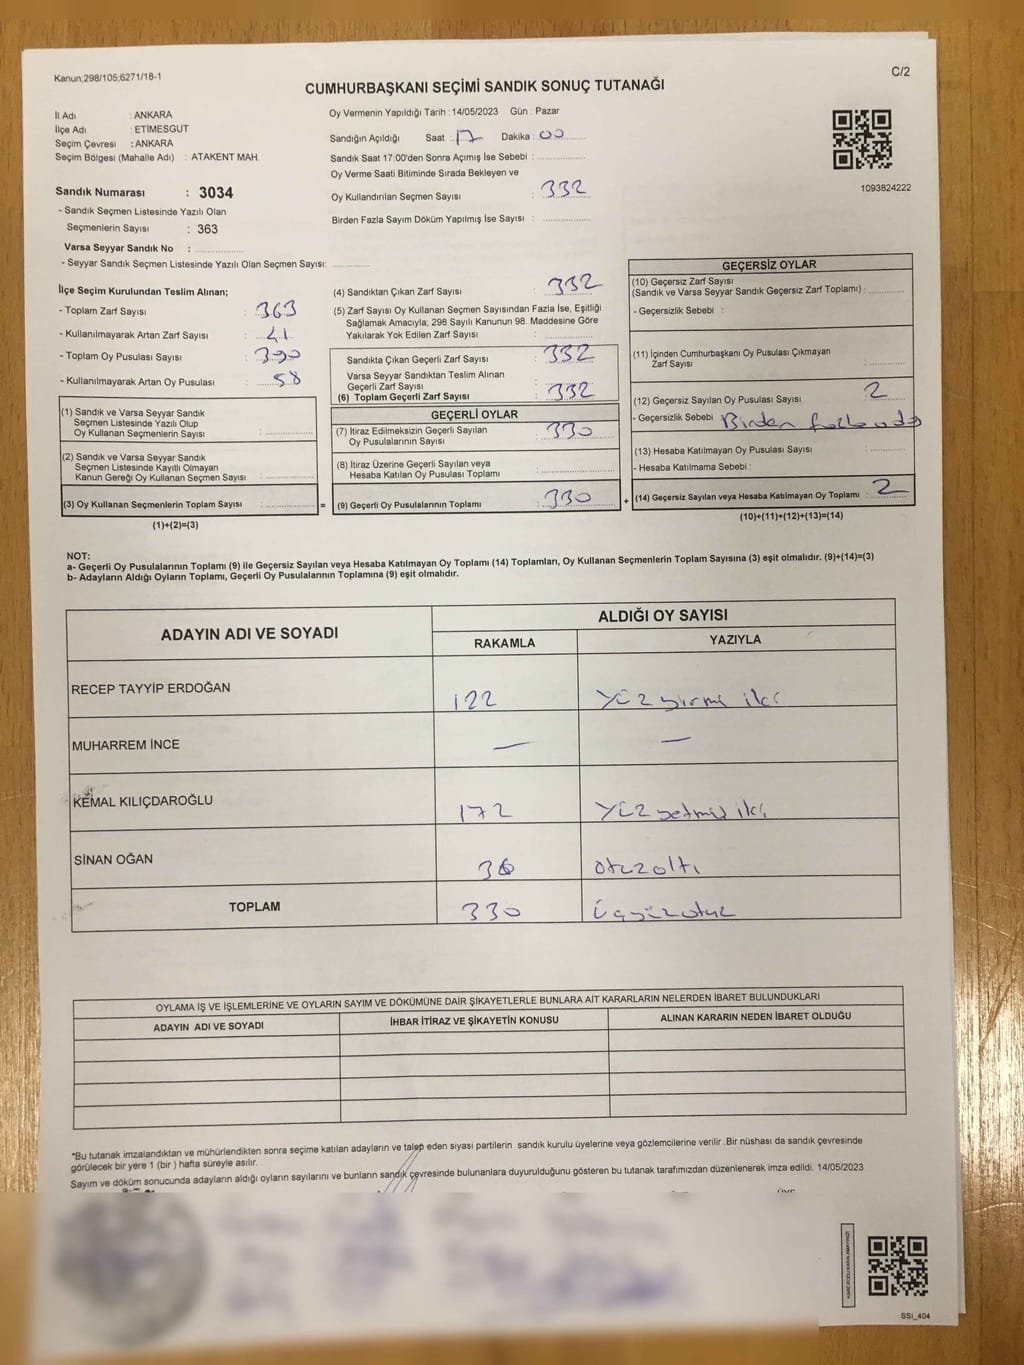 Kanun;298/105;6271/18-1
C/2
CUMHURBAŞKANI SEÇİMİ SANDIK SONUÇ TUTANAĞI
İl Adı : ANKARA
İlçe Adı : ETİMESGUT
Seçim Çevresi : ANKARA
Seçim Bölgesi (Mahalle Adı) : ATAKENT MAH.
Oy Vermenin Yapıldığı Tarih : 14/05/2023 Gün : Pazar
Sandığın Açıldığı Saat : 17 Dakika : 00
Sandık Saat 17:00'den Sonra Açımış İse Sebebi :
Oy Verme Saati Bitiminde Sırada Bekleyen ve
Oy Kullandırılan Seçmen Sayısı : 332
Birden Fazla Sayım Döküm Yapılmış İse Sayısı :
1093824222
Sandık Numarası : 3034
- Sandık Seçmen Listesinde Yazılı Olan
Seçmenlerin Sayısı : 363
Varsa Seyyar Sandık No :
- Seyyar Sandık Seçmen Listesinde Yazılı Olan Seçmen Sayısı:
İlçe Seçim Kurulundan Teslim Alınan;
- Toplam Zarf Sayısı : 363
- Kullanılmayarak Artan Zarf Sayısı :
- Toplam Oy Pusulası Sayısı : 390
- Kullanılmayarak Artan Oy Pusulası : 58
(1) Sandık ve Varsa Seyyar Sandık
Seçmen Listesinde Yazılı Olup
Oy Kullanan Seçmenlerin Sayısı :
(2) Sandık ve Varsa Seyyar Sandık
Seçmen Listesinde Kayıtlı Olmayan
Kanun Gereği Oy Kullanan Seçmen Sayısı :
(3) Oy Kullanan Seçmenlerin Toplam Sayısı :
(1)+(2)=(3)
(4) Sandıktan Çıkan Zarf Sayısı : 332
(5) Zarf Sayısı Oy Kullanan Seçmen Sayısından Fazla İse, Eşitliği
Sağlamak Amacıyla; 298 Sayılı Kanunun 98. Maddesine Göre
Yakılarak Yok Edilen Zarf Sayısı :
Sandıkta Çıkan Geçerli Zarf Sayısı : 332
Varsa Seyyar Sandıktan Teslim Alınan
Geçerli Zarf Sayısı :
(6) Toplam Geçerli Zarf Sayısı : 332
GEÇERLİ OYLAR
(7) İtiraz Edilmeksizin Geçerli Sayılan
Oy Pusulalarının Sayısı : 330
(8) İtiraz Üzerine Geçerli Sayılan veya
Hesaba Katılan Oy Pusulası Toplamı :
= (9) Geçerli Oy Pusulalarının Toplamı : 330
GEÇERSİZ OYLAR
(10) Geçersiz Zarf Sayısı
(Sandık ve Varsa Seyyar Sandık Geçersiz Zarf Toplamı) :
- Geçersizlik Sebebi :
(11) İçinden Cumhurbaşkanı Oy Pusulası Çıkmayan
Zarf Sayısı :
(12) Geçersiz Sayılan Oy Pusulası Sayısı : 2
- Geçersizlik Sebebi : Birden fazla
(13) Hesaba Katılmayan Oy Pusulası Sayısı :
- Hesaba Katılmama Sebebi :
+ (14) Geçersiz Sayılan veya Hesaba Katılmayan Oy Toplamı : 2
(10)+(11)+(12)+(13)=(14)
NOT:
a- Geçerli Oy Pusulalarının Toplamı (9) ile Geçersiz Sayılan veya Hesaba Katılmayan Oy Toplamı (14) Toplamları, Oy Kullanan Seçmenlerin Toplam Sayısına (3) eşit olmalıdır. (9)+(14)=(3)
b- Adayların Aldığı Oyların Toplamı, Geçerli Oy Pusulalarının Toplamına (9) eşit olmalıdır.
ADAYIN ADI VE SOYADI
ALDIĞI OY SAYISI
RAKAMLA YAZIYLA
RECEP TAYYİP ERDOĞAN 122 Yüz yirmi iki
MUHARREM İNCE — —
KEMAL KILIÇDAROĞLU 172 Yüz yetmiş iki
SİNAN OĞAN 36 otuz altı
TOPLAM 330 Üçyüz otuz
OYLAMA İŞ VE İŞLEMLERİNE VE OYLARIN SAYIM VE DÖKÜMÜNE DAİR ŞİKAYETLERLE BUNLARA AİT KARARLARIN NELERDEN İBARET BULUNDUKLARI
ADAYIN ADI VE SOYADI İHBAR İTİRAZ VE ŞİKAYETİN KONUSU ALINAN KARARIN NEDEN İBARET OLDUĞU
*Bu tutanak imzalandıktan ve mühürlendikten sonra seçime katılan adayların ve talep eden siyasi partilerin sandık kurulu üyelerine veya gözlemcilerine verilir .Bir nüshası da sandık çevresinde
görülecek bir yere 1 (bir ) hafta süreyle asılır.
Sayım ve döküm sonucunda adayların aldığı oyların sayılarını ve bunların sandık çevresinde bulunanlara duyurulduğunu gösteren bu tutanak tarafımızdan düzenlenerek imza edildi. 14/05/2023
KARE KODU KARALAMAYINIZ!
SSI_404